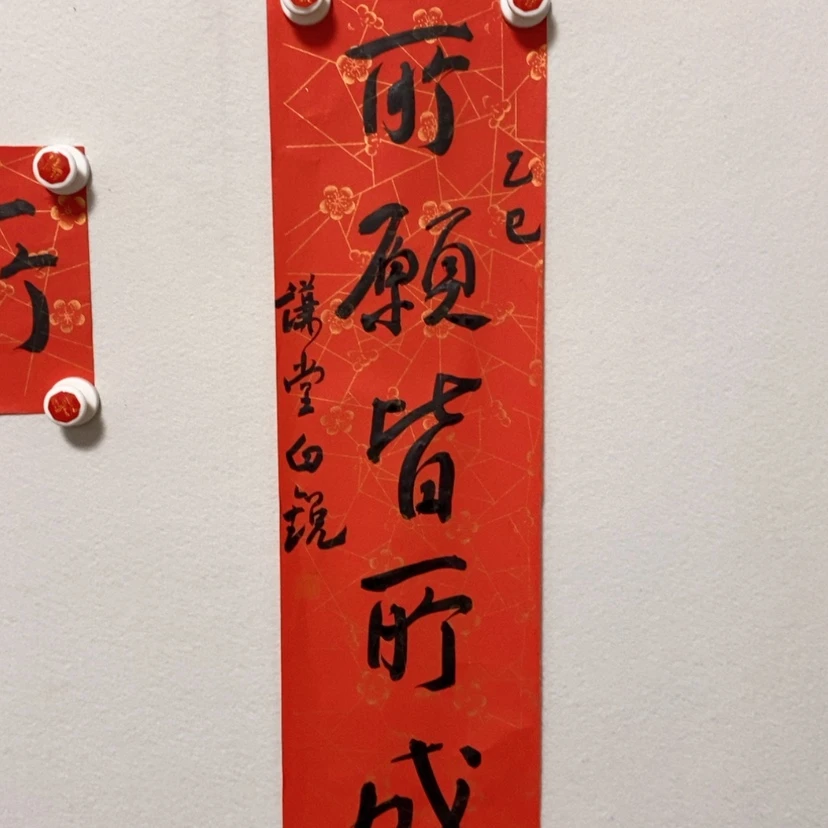 乙巳
所願皆所成
謙堂白銳
所